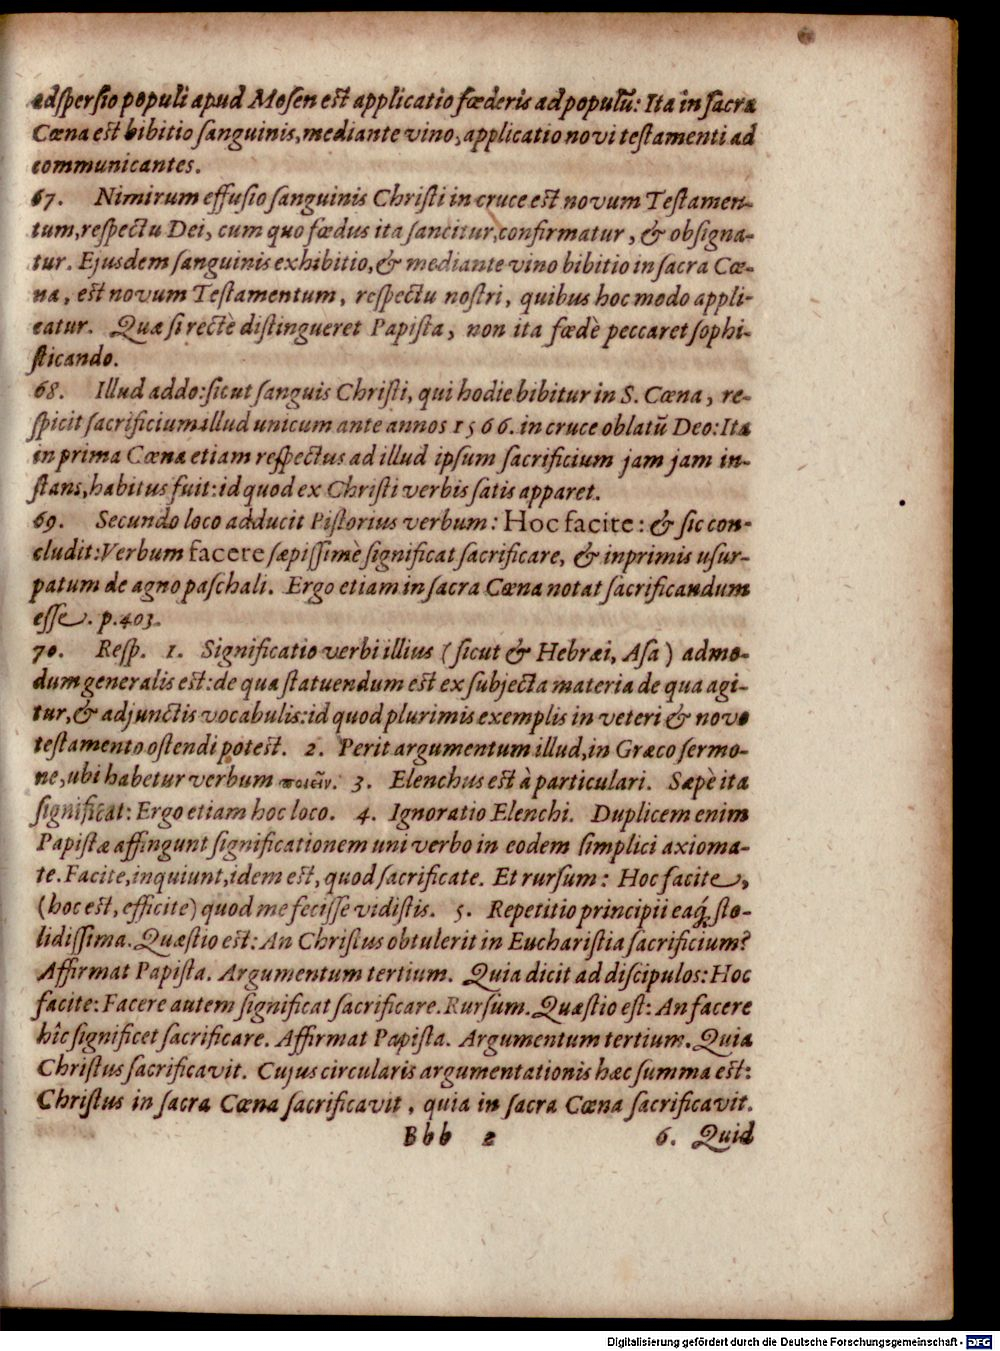 adſperſio populi apud Moſen eſt applicatio fœderis ad populũ: Ita in ſacra
Cœna eſt bibitio ſanguinis, mediante vino, applicatio novi teſtamenti ad
communicantes.
67. Nimirum effuſio ſanguinis Chriſti in cruce eſt novum Teſtamen-
tum, reſpectu Dei, cum quo fœdus ita ſancitur, confirmatur, & obſigna-
tur. Ejusdem ſanguinis exhibitio, & mediante vino bibitio in ſacra Cœ-
na, eſt novum Teſtamentum, reſpectu noſtri, quibus hoc modo appli-
catur. Quæ ſi rectè diſtingueret Papiſta, non ita fœdè peccaret ſophi-
ſticando.
68. Illud addo: ſicut ſanguis Chriſti, qui hodie bibitur in S. Cœna, re-
ſpicit ſacrificium illud unicum ante annos 1566. in cruce oblatũ Deo: Ita
in prima Cœna etiam reſpectus ad illud ipſum ſacrificium jam jam in-
ſtans, habitus fuit: id quod ex Chriſti verbis ſatis apparet.
69. Secundo loco adducit Piſtorius verbum: Hoc facite: & ſic con-
cludit: Verbum facere ſæpiſſimè ſignificat ſacrificare, & inprimis uſur-
patum de agno paſchali. Ergo etiam in ſacra Cœna notat ſacrificandum
eſſe. p. 403.
70. Reſp. 1. Significatio verbi illius (ſicut & Hebræi, Aſa) admo-
dum generalis eſt: de qua ſtatuendum eſt ex ſubjecta materia de qua agi-
tur, & adjunctis vocabulis: id quod plurimis exemplis in veteri & novo
teſtamento oſtendi poteſt. 2. Perit argumentum illud, in Græco ſermo-
ne, ubi habetur verbum ποιεῖν. 3. Elenchus eſt à particulari. Sæpè ita
ſignificat: Ergo etiam hoc loco. 4. Ignoratio Elenchi. Duplicem enim
Papiſtæ affingunt ſignificationem uni verbo in eodem ſimplici axioma-
te. Facite, inquiunt, idem eſt, quod ſacrificate. Et rurſum: Hoc facite,
(hoc eſt, efficite) quod me feciſſe vidiſtis. 5. Repetitio principii eaq́; ſto-
lidiſſima. Quæſtio eſt: An Chriſtus obtulerit in Euchariſtia ſacrificium?
Affirmat Papiſta. Argumentum tertium. Quia dicit ad diſcipulos: Hoc
facite: Facere autem ſignificat ſacrificare. Rurſum. Quæſtio eſt: An facere
hîc ſignificet ſacrificare. Affirmat Papiſta. Argumentum tertium. Quia
Chriſtus ſacrificavit. Cujus circularis argumentationis hæc ſumma eſt:
Chriſtus in ſacra Cœna ſacrificavit, quia in ſacra Cœna ſacrificavit.
Bbb 2 6. Quid
Digitalisierung gefördert durch die Deutsche Forschungsgemeinschaft - DFG